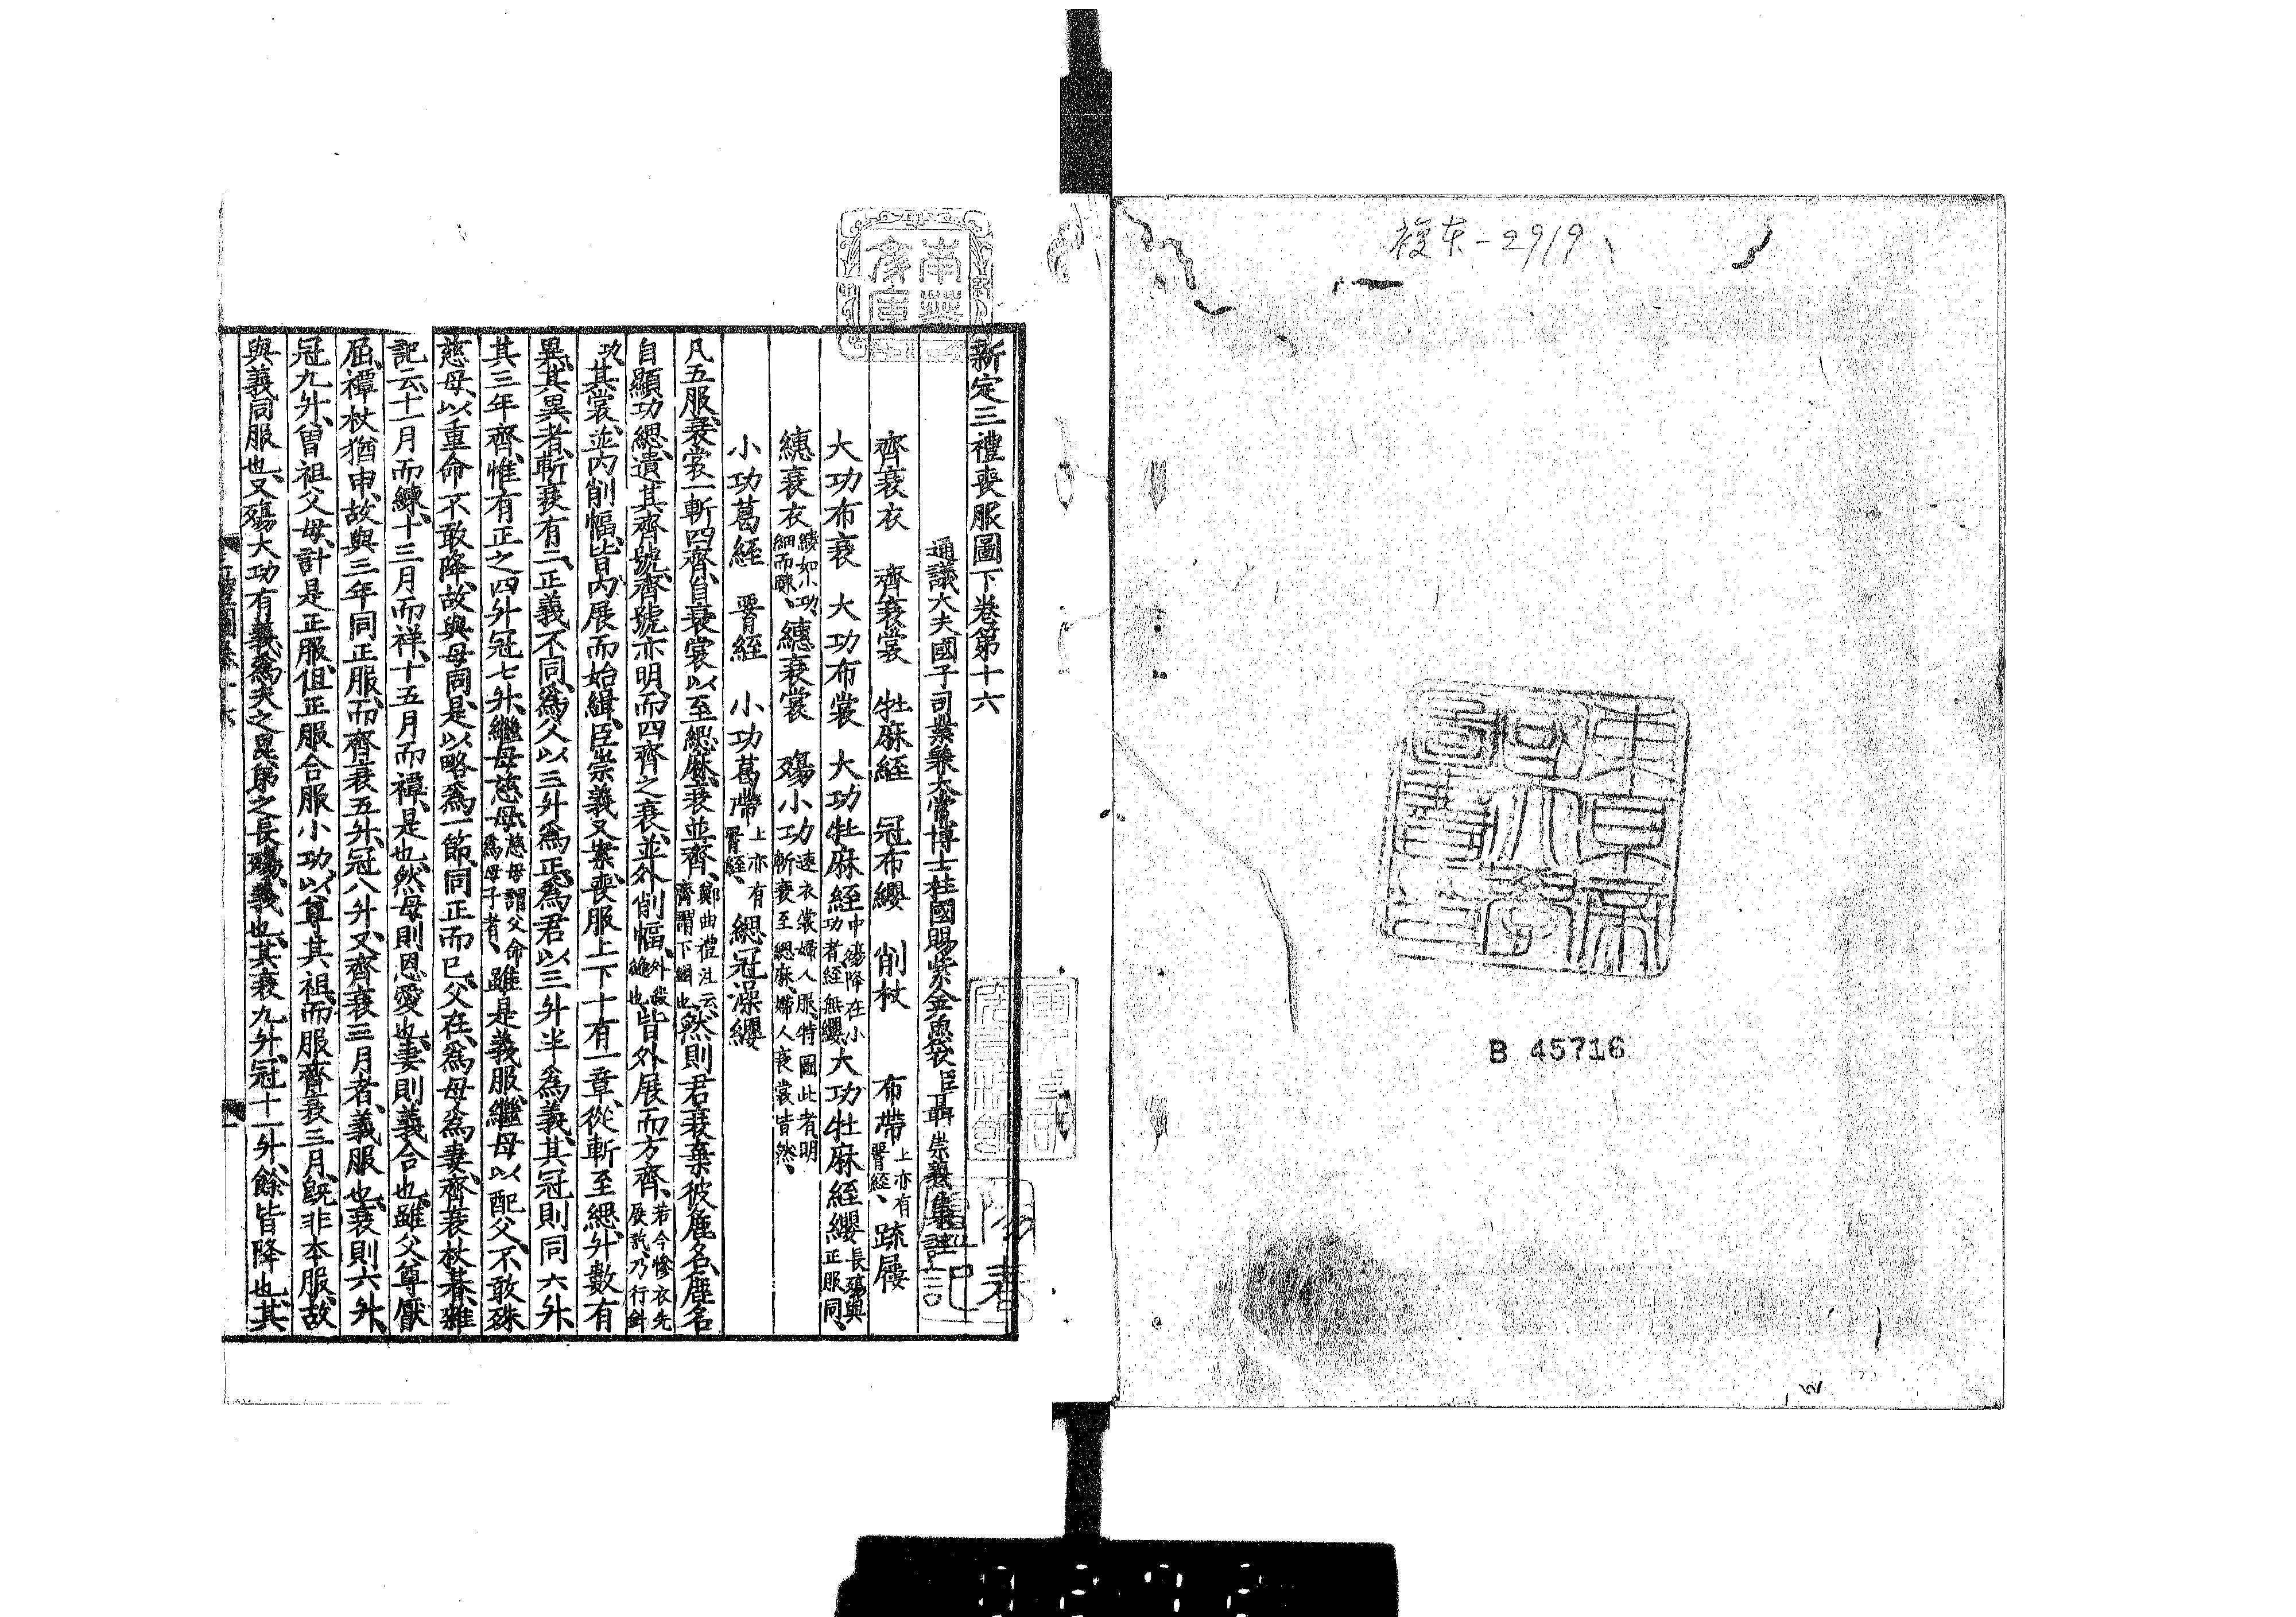 複东-2919
東京帝
國大學
圖書印
B 45716
新定三禮喪服圖下卷第十六
通議大夫國子司業兼太常博士柱國賜紫金魚袋臣聶崇義集註
齊衰衣 齊衰裳 牡麻絰 冠布纓 削杖 布帶上亦有䯱絰、疏屨
大功布衰 大功布裳 大功牡麻絰中殤降在小功者絰無纓、大功牡麻絰纓長殤與正服同、
繐衰衣縷如小功、細而疎、繐衰裳 殤小功連衣裳婦人服、特圖此者、明斬衰至緦麻、婦人衰裳皆然、
小功葛絰 䯱絰 小功葛帶上亦有䯱絰、緦冠澡纓
凡五服、衰裳一斬四齊、自衰裳以至緦麻、衰並齊、鄭曲禮注云、齊謂下緝也、然則君衰棄彼麄名、麄名
自顯功緦、遺其齊號、齊號亦明、而四齊之衰、並外削幅、外殺縫也、皆外展而方齊、若今慘衣先展訖、乃行針
功、其裳、並內削幅、皆內展而始緝、臣崇義又案、喪服上下十有一章、從斬至緦、升數有
異、其異者、斬衰有二、正義不同、爲父以三升爲正、爲君以三升半爲義、其冠則同六升、
其三年齊、惟有正之四升冠七升、繼母慈母、慈母謂父命爲母子者、雖是義服、繼母以配父、不敢殊
慈母、以重命不敢降、故與母同、是以略爲一節、同正而已、父在、爲母爲妻、齊衰杖朞、雜
記云、十一月而練、十三月而祥、十五月而禫、是也、然母則恩愛也、妻則義合也、雖父尊厭
屈、禫杖猶申、故與三年同正服、而齊衰五升、冠八升、又齊衰三月者、義服也、衰則六升、
冠九升、曾祖父母、計是正服、但正服合服小功、以尊其祖、而服齊衰三月、既非本服、故
與義同服也、又殤大功有義、爲夫之昆弟之長殤、義也、其衰九升、冠十一升、餘皆降也、其